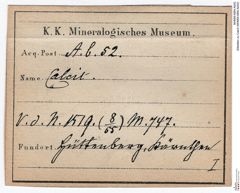 K. K. Mineralogisches Museum.
Acq. Post A.b.52.
Name. Calcit.
V. d. N. 1519. (8/55) M. 747.
Fundort. Hüttenberg, Kärnthen
I